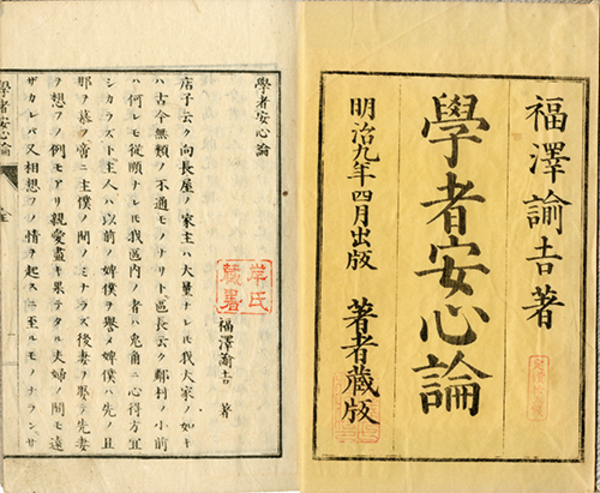 福澤諭吉著
學者安心論
明治九年四月出版 著者藏版
學者安心論
福澤諭吉 著
店子云ク向長屋ノ家主ハ大量ナレ𪜈我大家ノ如キ
ハ古今無類ノ不通モノナリト區長云ク鄰村ノ小前
ハ何レモ從順ナレ𪜈我區内ノ者ハ兎角ニ心得方宜
シカラズト主人ハ以前ノ婢僕ヲ譽メ婢僕ハ先ノ旦
那ヲ慕フ啻ニ主僕ノ間ノミナラズ後妻ヲ娶テ先妻
ヲ想フノ例モアリ親愛盡キ果テタル夫婦ノ間モ遠
ザカレバ又相想フノ情ヲ起スニ至ルモノナランサ
學者安心論
氏
藏書